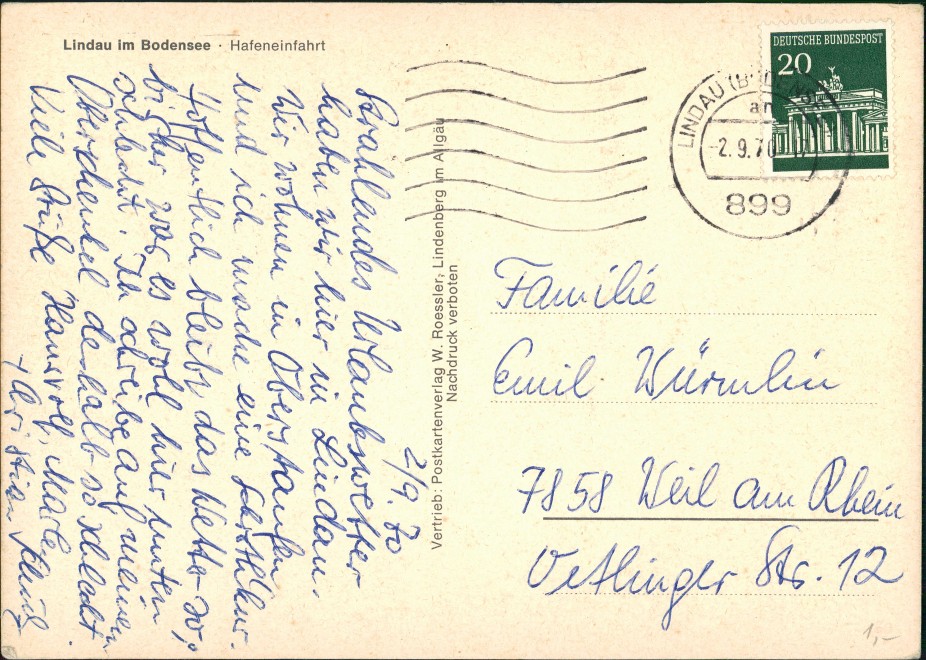 Lindau im Bodensee · Hafeneinfahrt
DEUTSCHE BUNDESPOST
20
LINDAU (BODENS
an
-2.9.70
899
2/9. 70
Strahlendes Urlaubswetter
haben wir hier in Lindau.
Wir wohnen in Oberstaufen
und ich mache eine Schrothkur.
Hoffentlich bleibt das Wetter so,
bisher war es wohl hier unten
schlecht. Ich schreibe auf meinem
Oberschenkel deshalb so schlecht.
Viele Grüße Hansrolf, Marlen
+ Christian
Vertrieb: Postkartenverlag W. Roessler, Lindenberg im Allgäu
Nachdruck verboten
Familie
Emil Würmlin
7858 Weil am Rhein
Oetlinger Str. 12
1,-